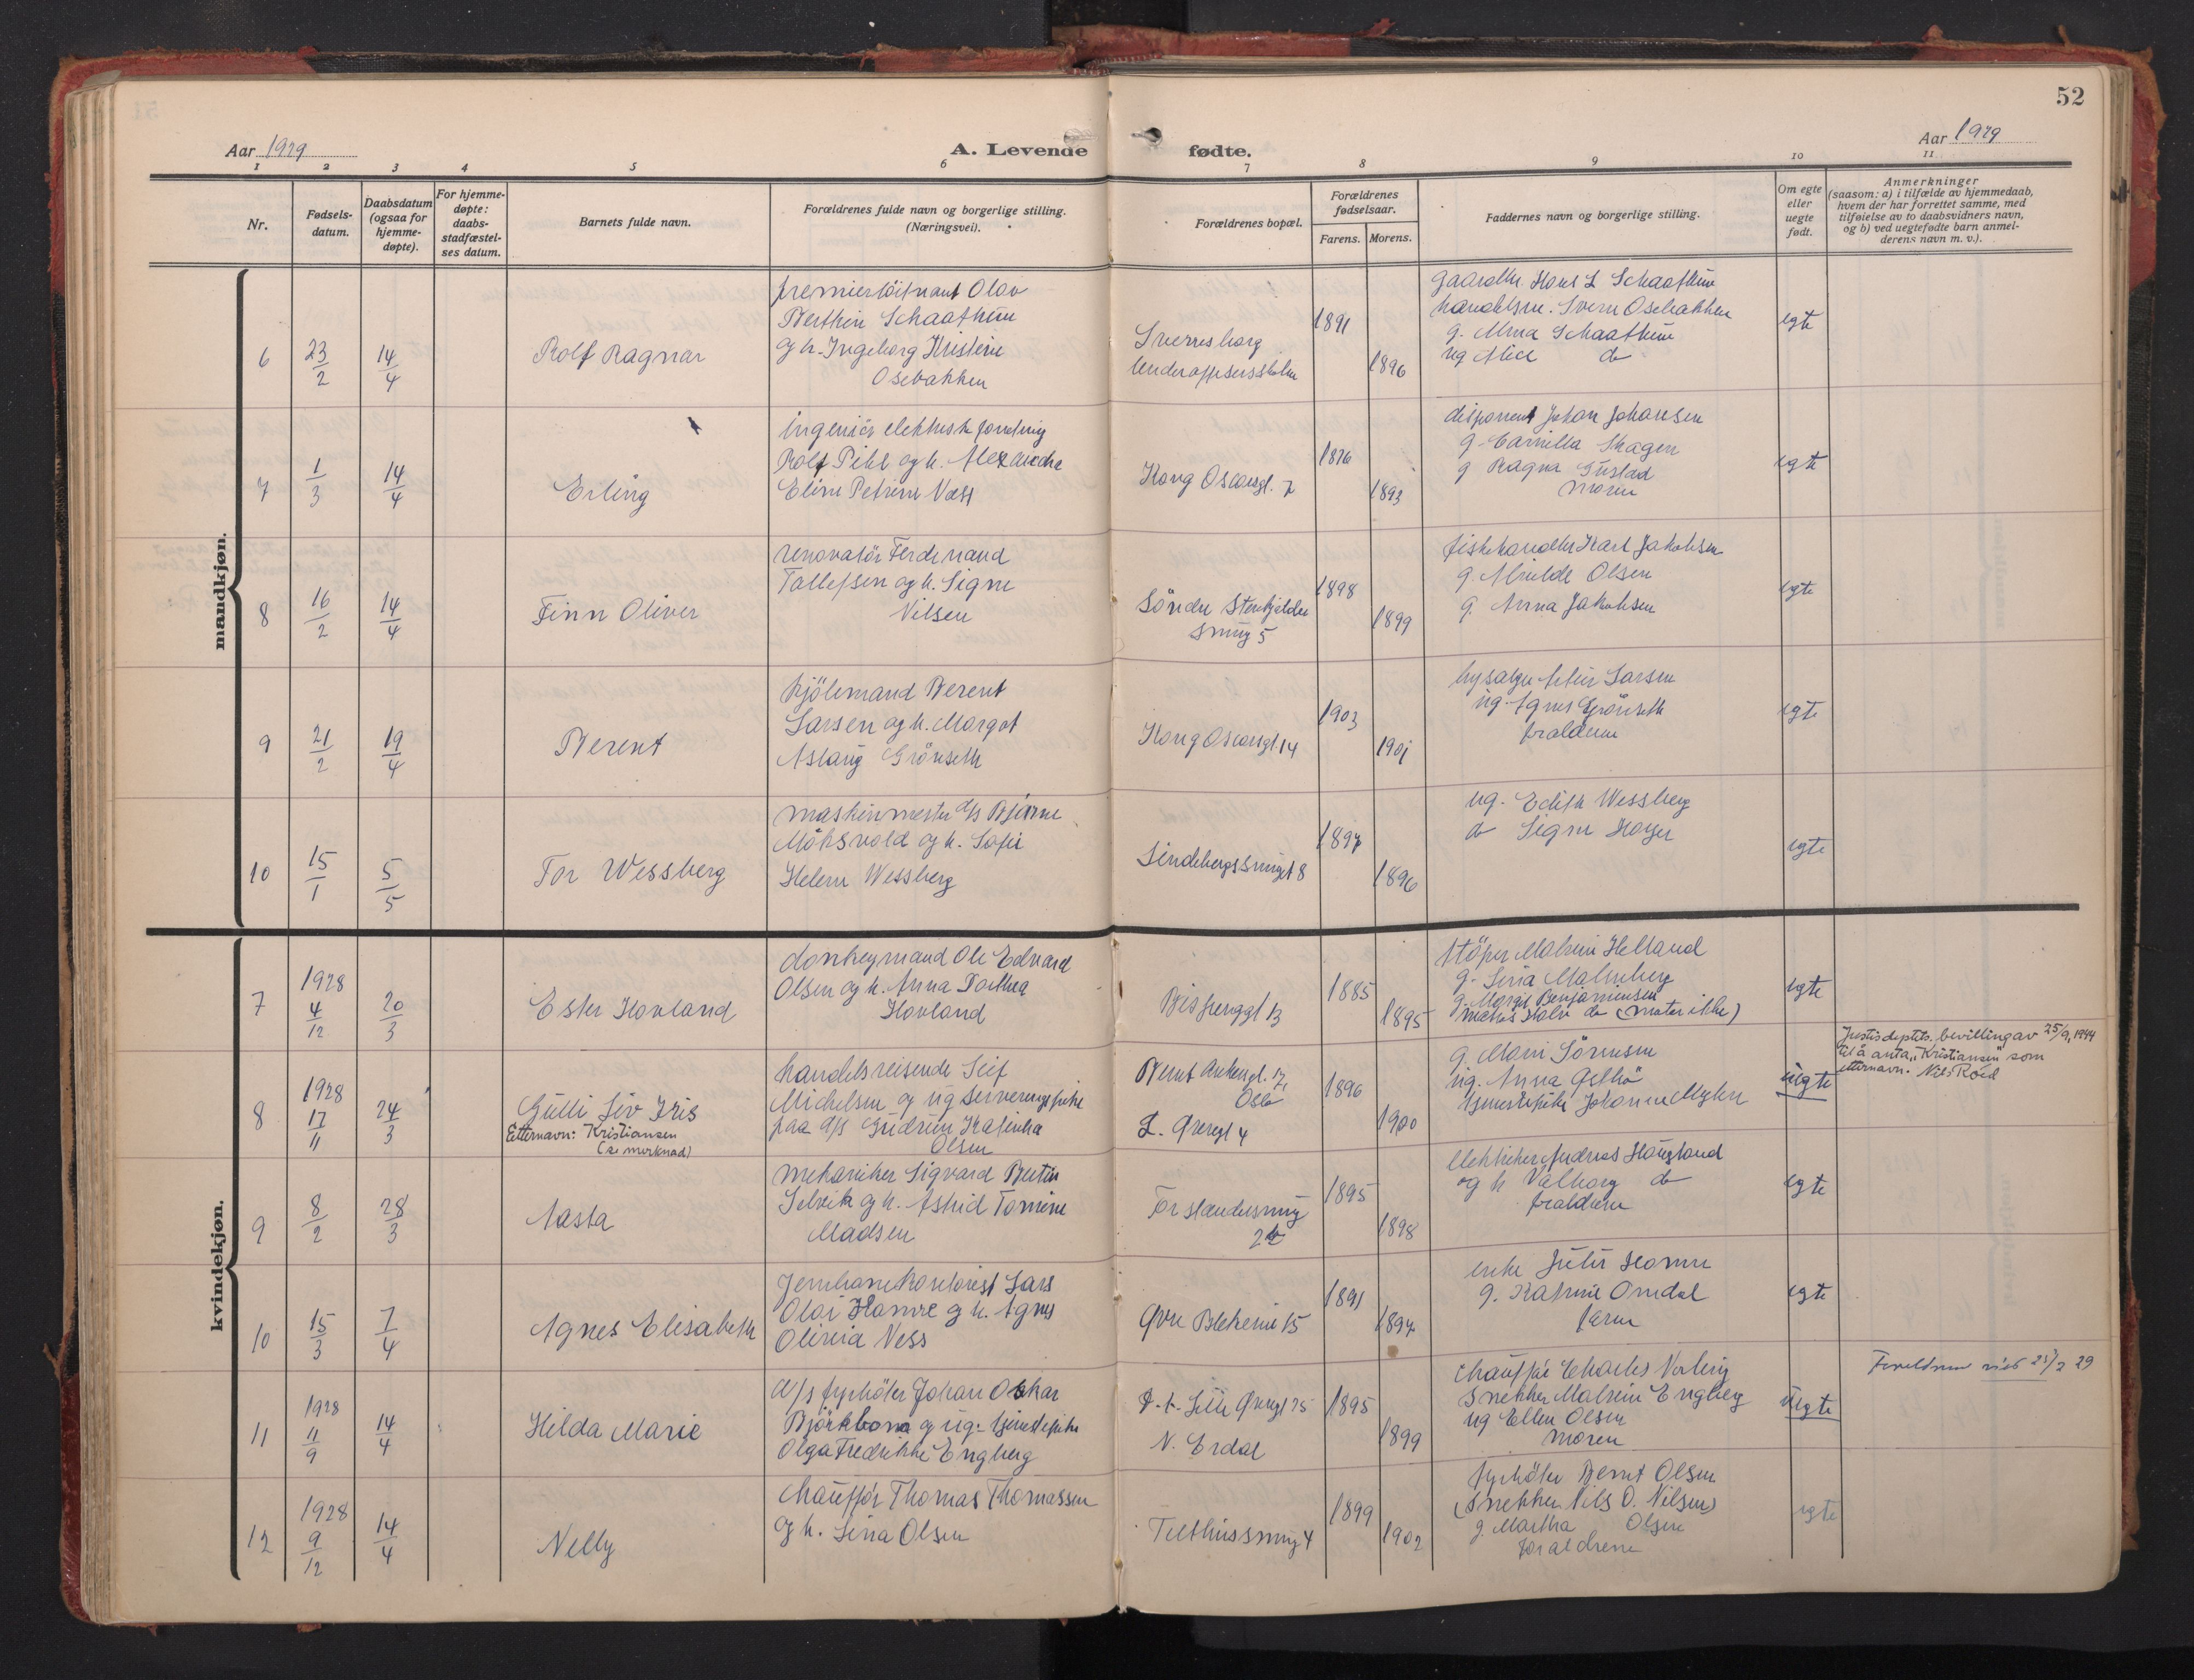 52
Aar 1929
A. Levende
fødte.
Aar 1929
1 2 3 4 5 6 7 8 9 10 11
Nr.
Fødsels-
datum.
Daabsdatum
(ogsaa for
hjemme-
døpte).
For hjemme-
døpte:
daabs-
stadfæstel-
ses datum.
Barnets fulde navn.
Forældrenes fulde navn og borgerlige stilling.
(Næringsvei).
Forældrenes bopæl.
Forældrenes
fødselsaar.
Farens. Morens.
Faddernes navn og borgerlige stilling.
Om egte
eller
uegte
født.
Anmerkninger
(saasom: a) i tilfælde av hjemmedaab,
hvem der har forrettet samme, med
tilføielse av to daabsvidners navn,
og b) ved uegtefødte barn anmel-
derens navn m. v.).
mandkjøn.
6
23/2
14/4
Rolf Ragnar
premierløitnant Olav
Berthin Schaathun
og h. Ingeborg Kristine
Osebakken
Sverresborg
1891
1896
Hans L Schaathun
Osebakken
g. Schaathun
ug Alice do
egte
7
1/3
14/4
Erling
Ingeniör elektrisk forretning
Rolf Pihl og h. Alexandra
Eline Petrine Næss
Kong Oscarsgt. 7
1876
1893
disponent Johan Johansen
g. Camilla Skagen
g Ragna Gustad
moren
egte
8
16/2
14/4
Finn Oliver
renovatör Ferdinand
Tollefsen og h. Signe
Nilsen
Söndre
smug 5
1898
1899
fiskehandler Karl Jakobsen
g. Olsen
g. Anna Jakobsen
egte
9
21/2
19/4
Berent
kjölemand Berent
Larsen og h. Margot
Aslaug Grönseth
Kong Oscarsgt. 14
1903
1901
Larsen
ug. Agnes Grönseth
foraldrene
egte
10
15/1
5/5
Tor Wessberg
maskinmester d/s Bjarne
Möksvold og h. Sofie
Helene Wessberg
Lindebergssmuget 8
1897
1896
ug. Edith Wessberg
do Signe Hoyer
egte
kvindekjøn.
7
1928
4/12
20/3
Ester Hovland
donkeymand Ole Edvard
Olsen og h. Anna Dorthea
Hovland
Bispenggt 13
1885
1895
stöper Malvin Helland
g. Lina Malmberg
g. Margit Benjaminsen
do (mater ikke)
egte
8
1928
17/11
24/3
Gulli Liv Iris
Etternavn: Kristiansen
(se merknad)
handelsreisende Leif
Michelsen og ug serveringspike
paa d/s Gudrun Katinka
Olsen
Bernt Ankersgt. 17
Oslo
L. Øvregt 4
1896
1900
g. Marie Sörensen
ug. Anna
tjenestepike Johanne Myken
uegte
Justisdeptets. bevilling av 25/9, 1944
til å anta "Kristiansen" som
etternavn. Nils Roed
9
8/2
28/3
Aasta
mekaniker Sigvard Bertin
Selvik og h. Astrid Tomine
Madsen
2
1895
1898
elektriker Andreas Haugland
og h Valborg do
foraldrene
egte
10
15/3
7/4
Agnes Elisabeth
Jernbanekontorist Lars
Olai Hamre og h. Agnes
Olivia Ness
Øvre Blekevei 15
1891
1897
enke Hamre
g. Katrine Omdal
faren
egte
11
1928
11/9
14/4
Hilda Marie
d/s fyrböter Johan Oskar
Björkbona og ug. tjenestepike
Olga Fredrikke Engberg
Lille Øvregt 25
N. Erdal
1895
1899
chaufför Charles
snekker Malvin Engberg
ug Ellen Olsen
moren
uegte
Foreldrene viet 25/2 29
12
1928
9/12
14/4
Nelly
chauffør Thomas Thomassen
og h. Lina Olsen
Telthussmug 4
1899
1902
fyrböter Bernt Olsen
(snekker Nils O. Nilsen)
g. Martha Olsen
foraldrene
egte